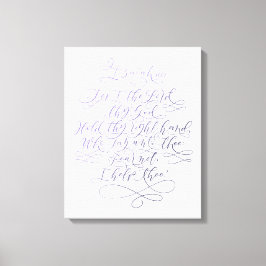 Isaiah
For I the Lord
thy God
Hold thy right hand,
Who say unto thee
Fear not,
I help thee